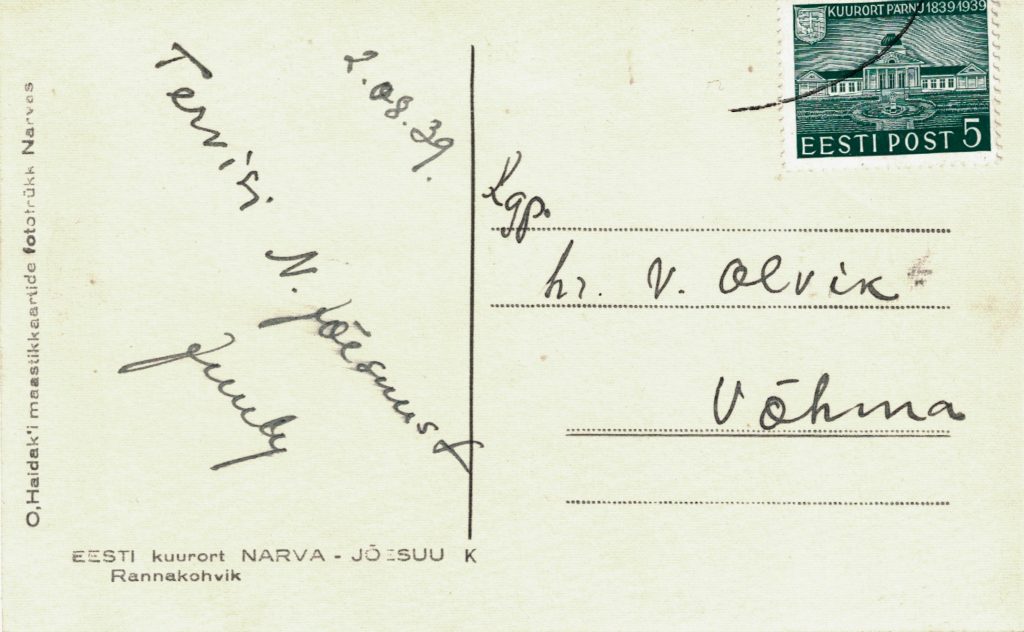 O,Haidak'i maastikkaartide fototrükk Narvas
2.08.39.
Tervisi
N. Jõesuust
EESTI kuurort NARVA - JÕESUU K
Rannakohvik
KUURORT PÄRNU 1839 1939
EESTI POST 5
Kgp.
hr. V. Olvik
Võhma